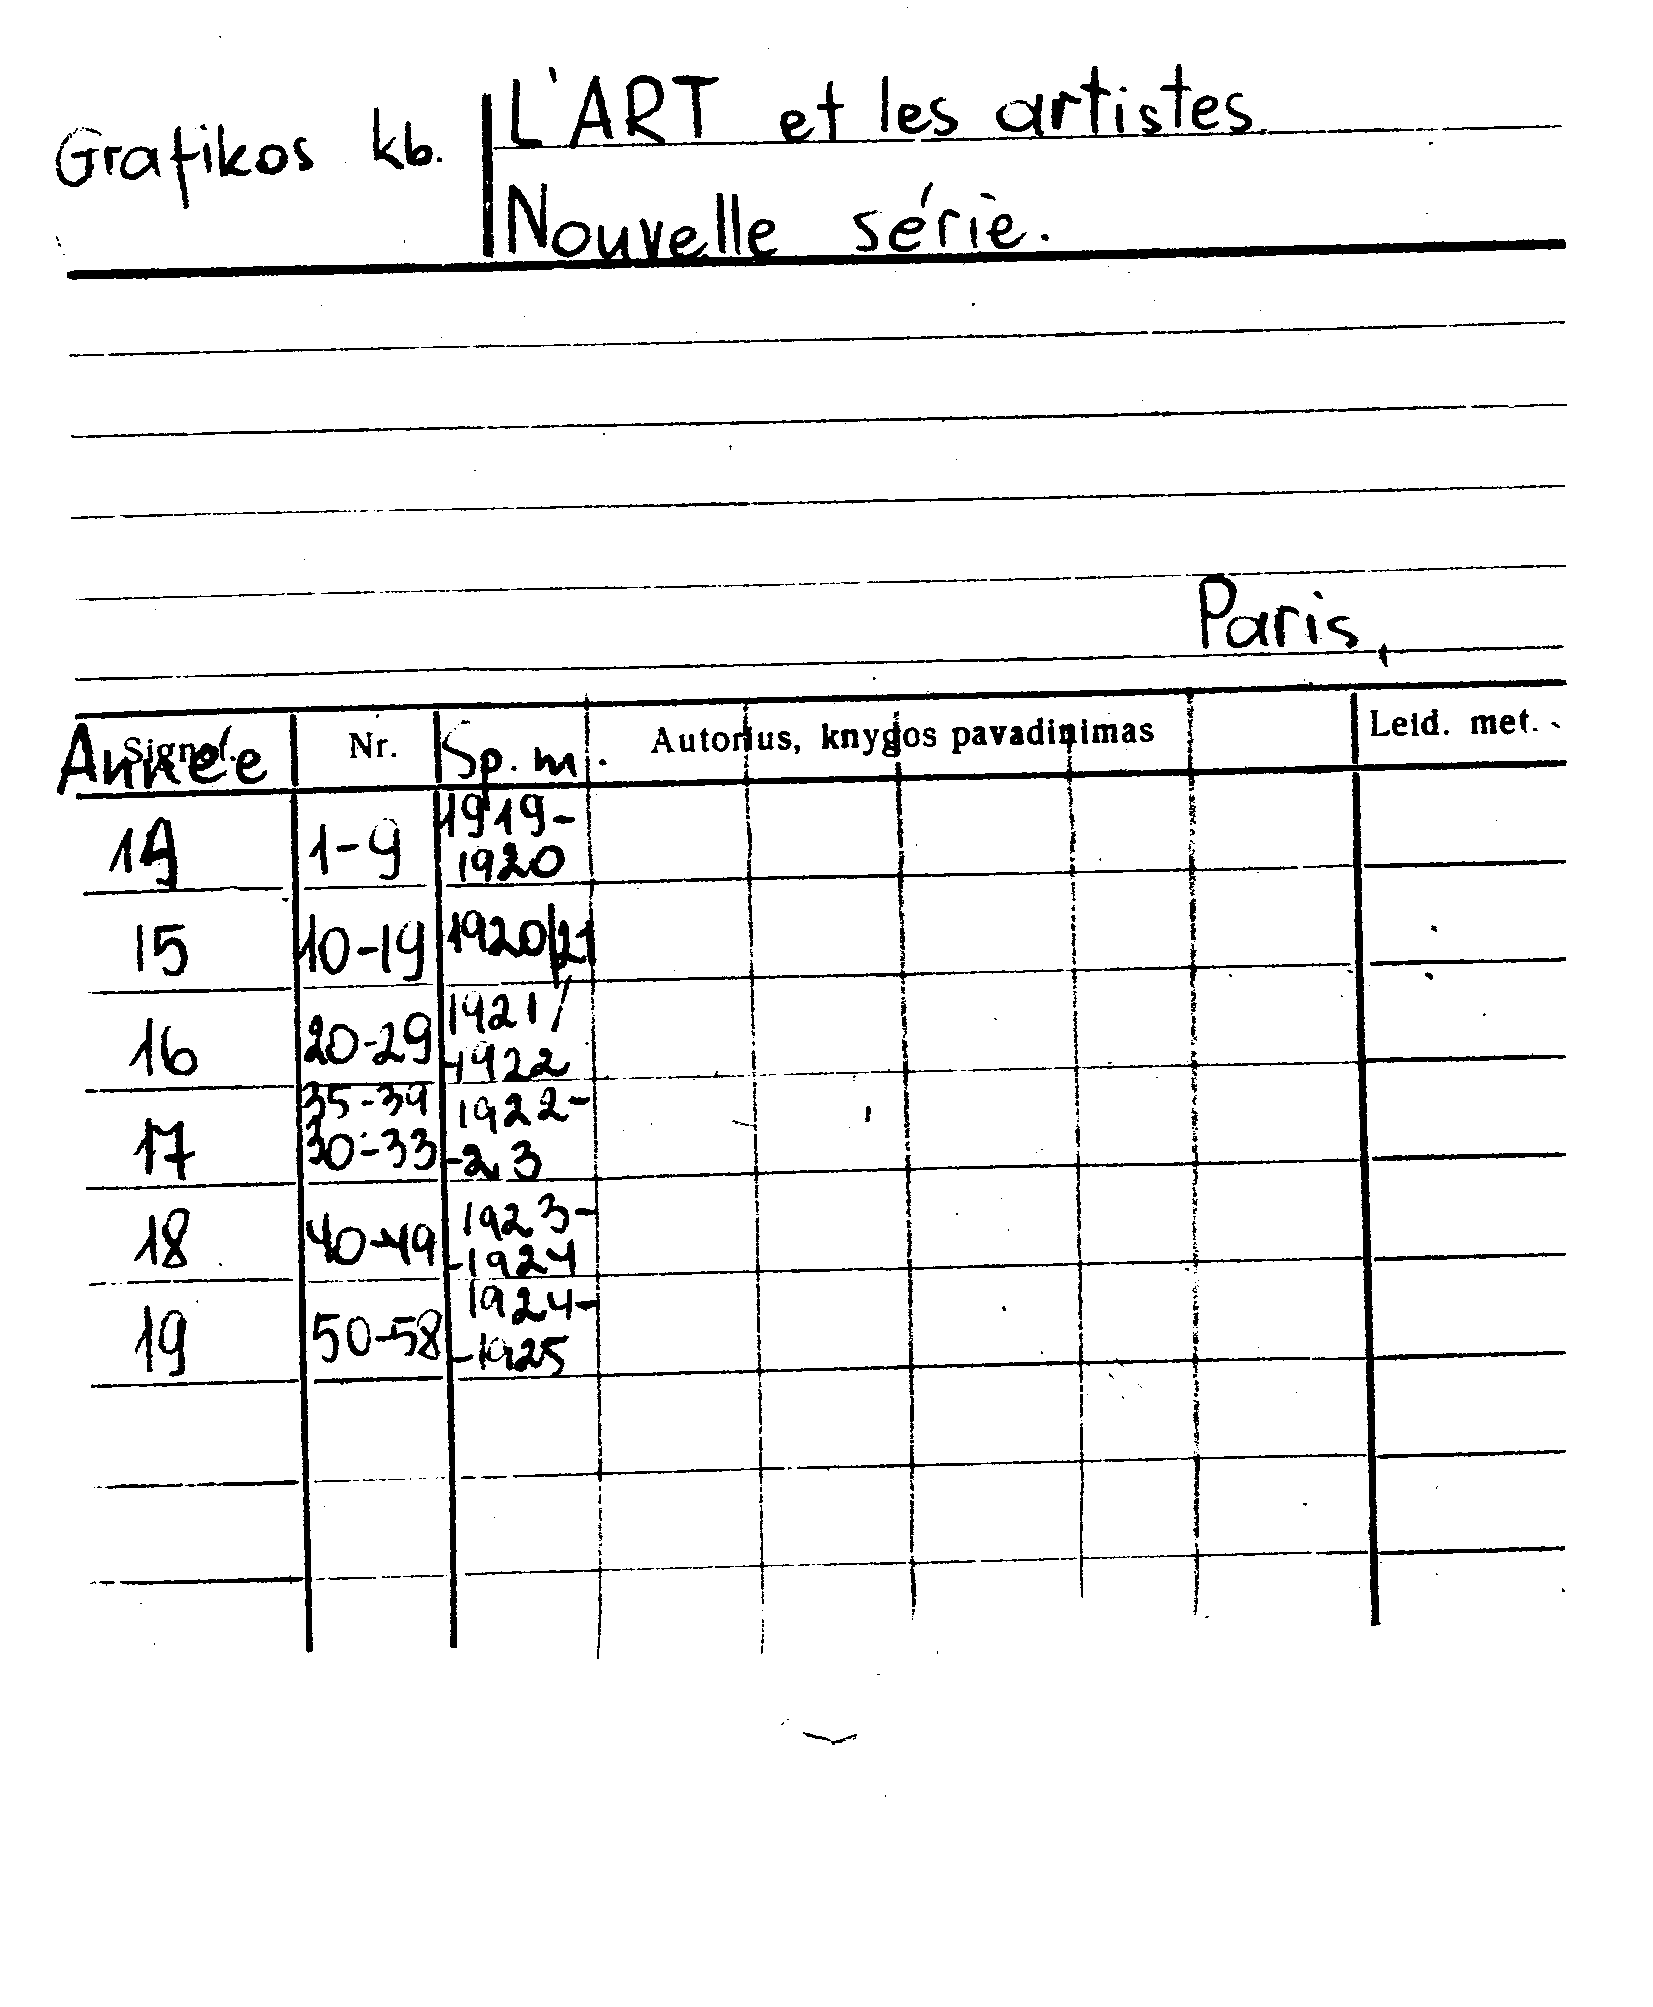 Grafikos kb. L'ART et les artistes
Nouvelle série.
Paris,
Année Nr. Sp. m. Autorius, knygos pavadinimas Leid. met.
14 1-9 1919-
1920
15 10-19 1920/21
16 20-29 1921/
-1922
17 35-39 1922-
30-33 -23
18 40-49 1923-
-1924
19 50-58 1924-
-1925